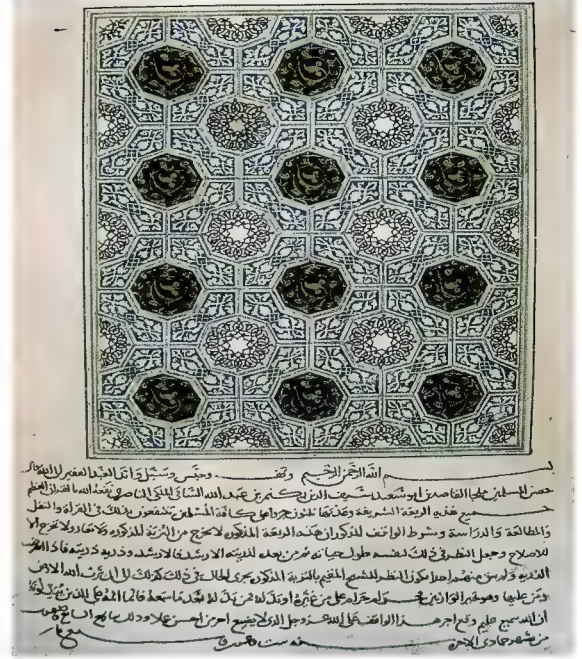 بسم الله الرحمن الرحيم وقف وحبس وسبل وابد العبد الفقير الى الله تعالى
حصن المسلمين ملجا القاصدين ابو سعيد سيف الدين بكتمر بن عبد الله الساقى الملكى الناصرى تغمده الله
جميع هذه الربعة الشريفة وعدتها ثلثون جزوا على كافة المسلمين ينتفعون بذلك فى القراة والنقل
والمطالعة والدراسة وشرط الواقف المذكور ان هذه الربعة المذكوره لا تخرج من التربة المذكوره ولا تعار ولا تخرج الا
للاصلاح وجعل النظر فى ذلك لنفسه طول حياته ثم من بعده لذريته الارشد فالارشد وذريه ذريته فاذا انقرضت
الذريه ولم يبق منهم احدا يكون النظر للشيخ المقيم بالتربة المذكوره يجرى الحال فى ذلك كذلك الى ان يرث الله الارض
ومن عليها وهو خير الوارثين حرام على من غيره او بدله فمن بدله بعد ما سمعه فانما اثمه على الذين يبدلونه
ان الله سميع عليم وقع اجر هذا الواقف على الله عز وجل الذى لا يضيع اجر من احسن عملا وذلك بتاريخ السابع
من شهر جمادى الاخره سنة ست وعشرين